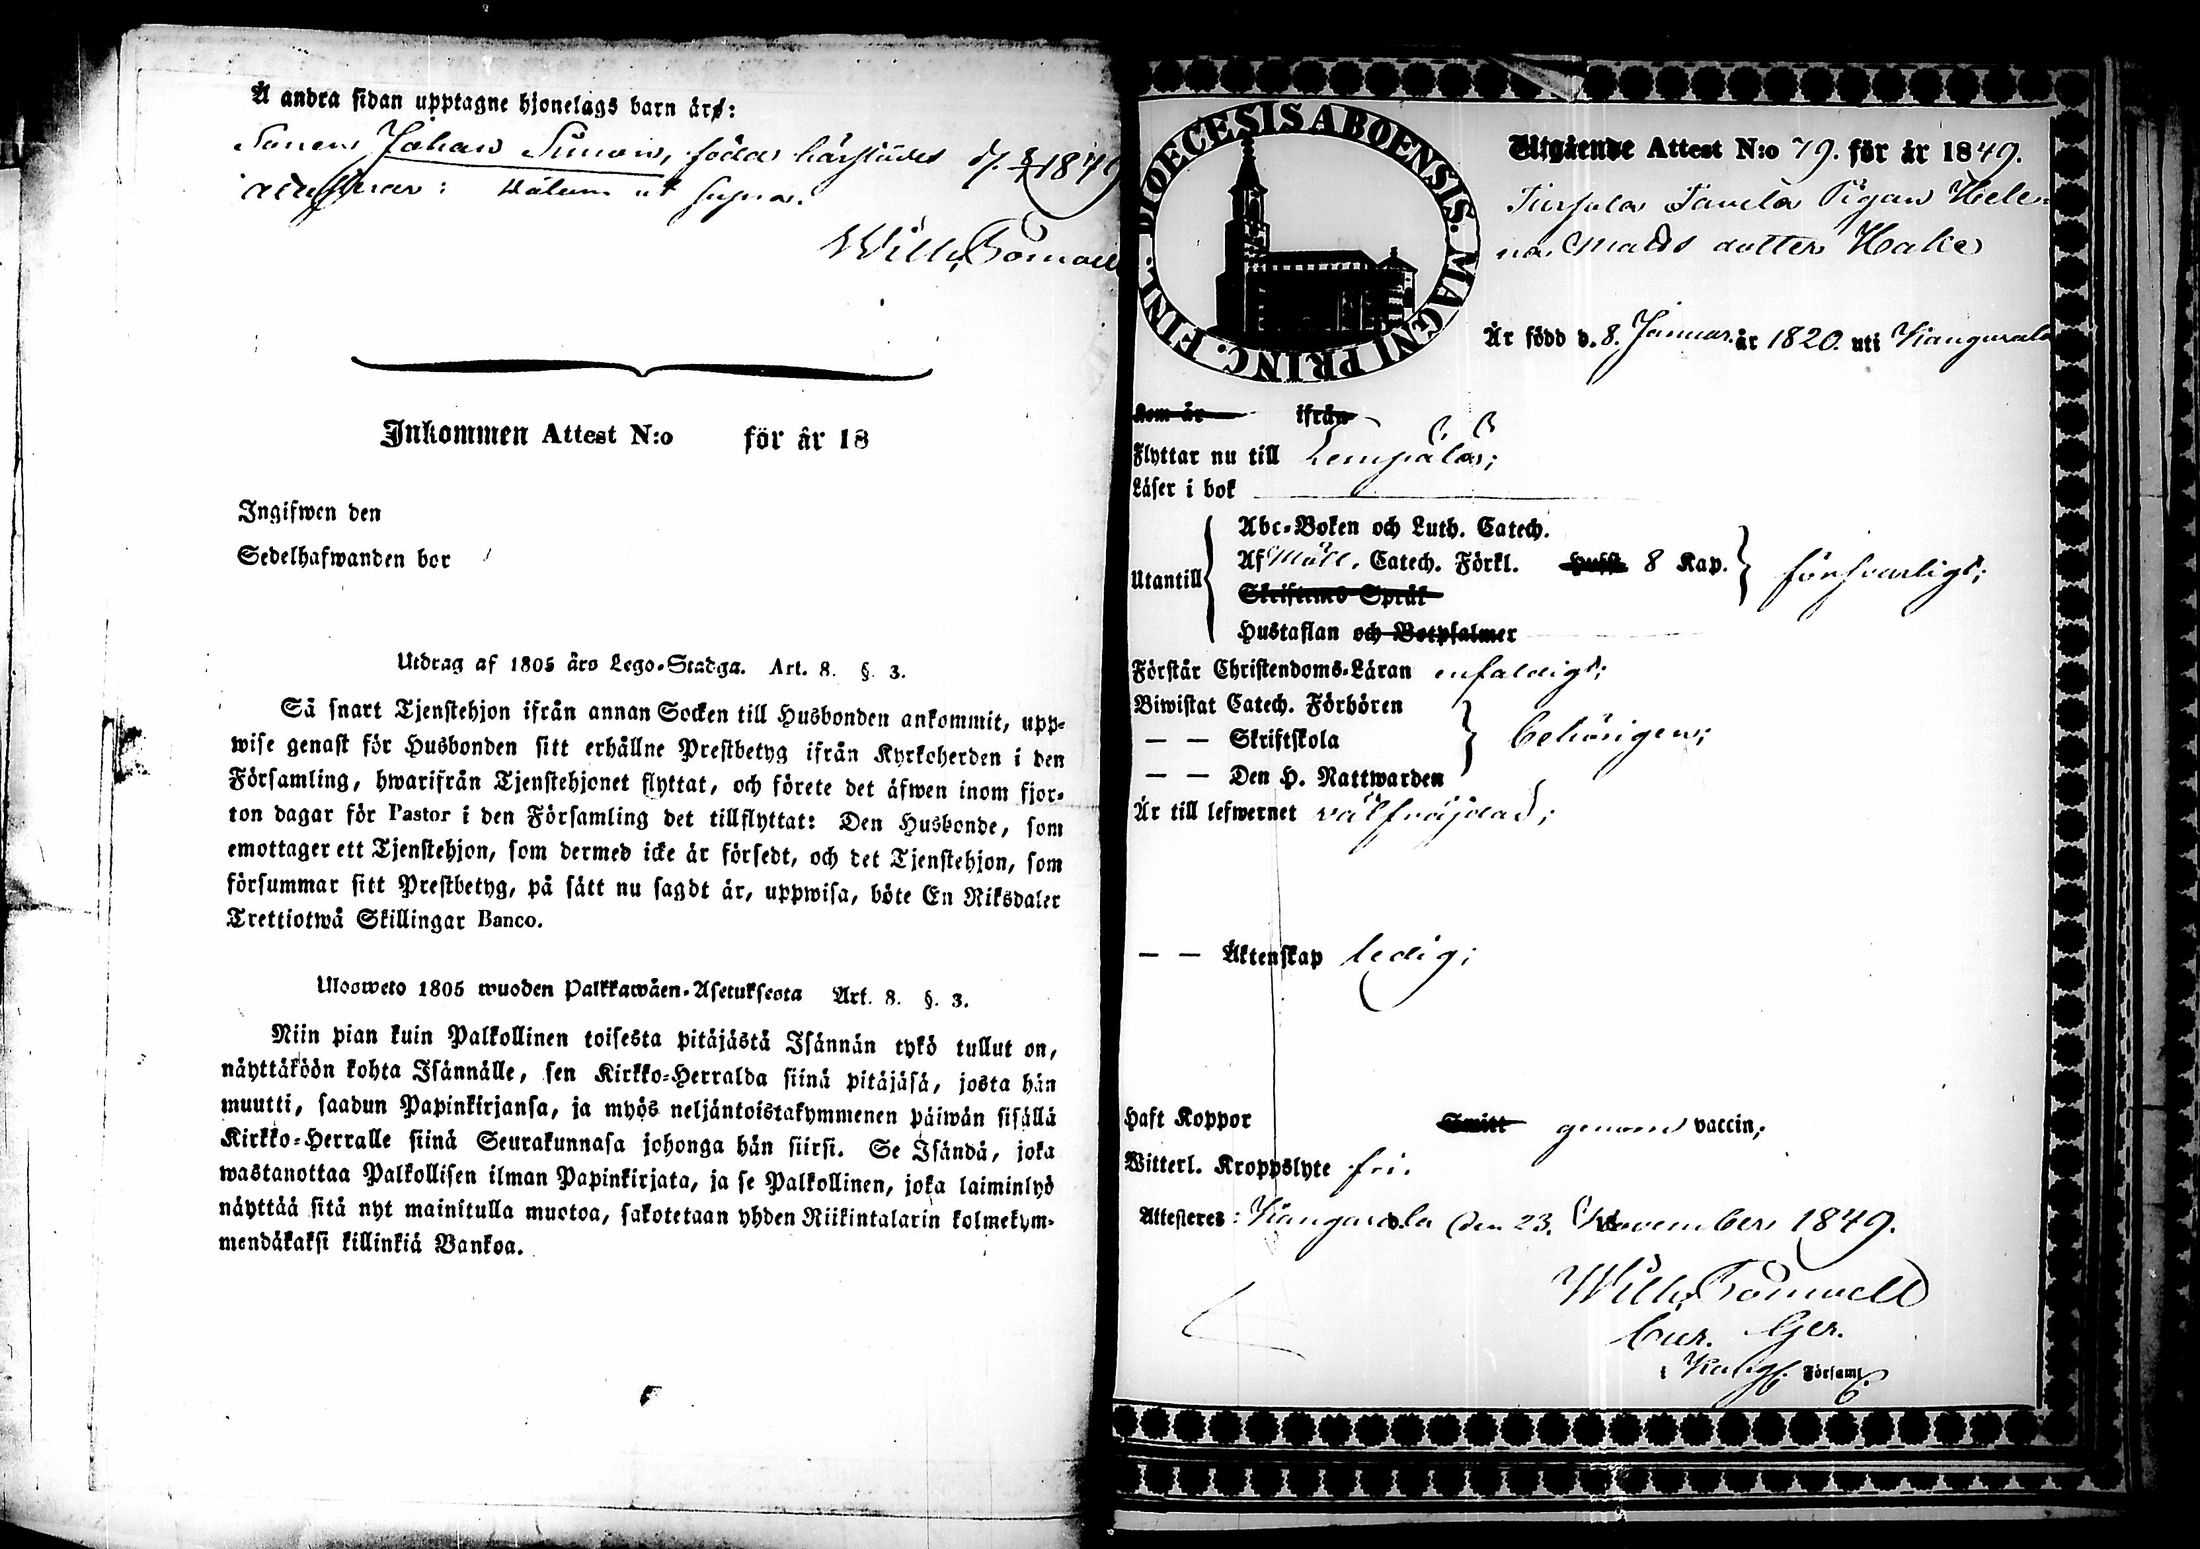 Å andra sidan upptagne hjonelags barn äro:
Sonen Johan Simon, född härstädes d. 1849
attesterar: Datum ut supra.
Wilh.
Inkommen Attest N:o för år 18
Ingifwen den
Sedelhafwanden bor
Utdrag af 1805 års Lego-Stadga. Art. 8. §. 3.
Så snart Tjenstehjon ifrån annan Socken till Husbonden ankommit, upp-
wise genast för Husbonden sitt erhållne Prestbetyg ifrån Kyrkoherden i den
Församling, hwarifrån Tjenstehjonet flyttat, och förete det äfwen inom fjor-
ton dagar för Pastor i den Församling det tillflyttat: Den Husbonde, som
emottager ett Tjenstehjon, som dermed icke är försedt, och det Tjenstehjon, som
försummar sitt Prestbetyg, på sätt nu sagdt är, uppwisa, böte En Riksdaler
Trettiotwå Skillingar Banco.
Ulosweto 1805 wuoden Palkkawäen-Asetuksesta Art. 8. §. 3.
Niin pian kuin Palkollinen toisesta pitäjästä Isännän tykö tullut on,
näyttäköön kohta Isännälle, sen Kirkko-Herralda siinä pitäjäsä, josta hän
muutti, saadun Papinkirjansa, ja myös neljäntoistakymmenen päiwän sisällä
Kirkko-Herralle siinä Seurakunnasa johonga hän siirsi. Se Isändä, joka
wastanottaa Palkollisen ilman Papinkirjata, ja se Palkollinen, joka laiminlyö
näyttää sitä nyt mainitulla muotoa, sakotetaan yhden Riikintalarin kolmekym-
mendäkaksi killinkiä Bankoa.
DIOECESIS ABOENSIS. MAGNI PRINC. FINL.
Utgående Attest N:o 79. för år 1849.
Pigan Hele-
na Matts dotter Hake
Är född d. 8. Januar. år 1820. uti Kangasala
Kom år ifrån
Flyttar nu till Lempälä;
Läser i bok
Abc-Boken och Luth. Catech.
Utantill Af Möll. Catech. Förkl. Husst 8 Kap. försvarligt;
Skriftens Språk
Hustaflan och Botpsalmer
Förstår Christendoms-Läran enfaldigt;
Biwistat Catech. Förhören
— — Skriftskola behörigen;
— — Den H. Nattwarden
Är till lefwernet välfräjdad;
— — Äktenskap ledig;
Haft Koppor Smitt genom vaccin;
Witterl. Kroppslyte fri.
Attesteres: Kangasala den 23. November 1849.
Wilh.
i Församl.